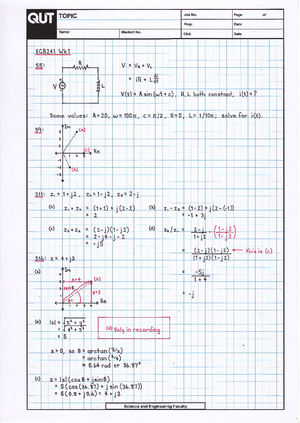 QUT TOPIC
Job No. Page of
Prep. Date
Name: Student No. Chk'd Date
EGB241 Wk1
S8:
R
V L
V = VR + VL
= iR + L di/dt
V(t) = A sin(wt + c), R, L both constant, i(t) = ?
Some values: A = 20, w = 100π, c = π/2, R = 5, L = 1/10π; solve for i(t).
Im
(a)
(c) Re
(b)
S11: z₁ = 1 + j2, z₂ = 1 - j2, z₃ = 2 - j
(a) z₁ + z₂ = (1+1) + j(2-2)
= 2
(b) z₁ - z₃ = (1-2) + j(2-(-1))
= -1 + 3j
(c) z₂ × z₃ = (2-j)(1-j2)
= 2 - j4 - j - 2
= -j5
(d) z₃/z₁ = 2-j/1+j2 · (1-j2/1-j2)
= (2-j)(1-j2)/(1+j2)(1-j2)
= -5j/1+4
= -j
z = 4 + j3
(a)
Im
Re
(b) |z| = √x² + y²
= √4² + 3²
= 5
(d) Only in recording
x > 0, so θ = arctan(y/x)
= arctan(3/4)
= 0.64 rad or 36.87°
(c) z = |z|(cosθ + jsinθ)
= 5(cos(36.87) + j sin(36.87))
= 5(0.8 + j0.6) = 4 + j3
Science and Engineering Faculty